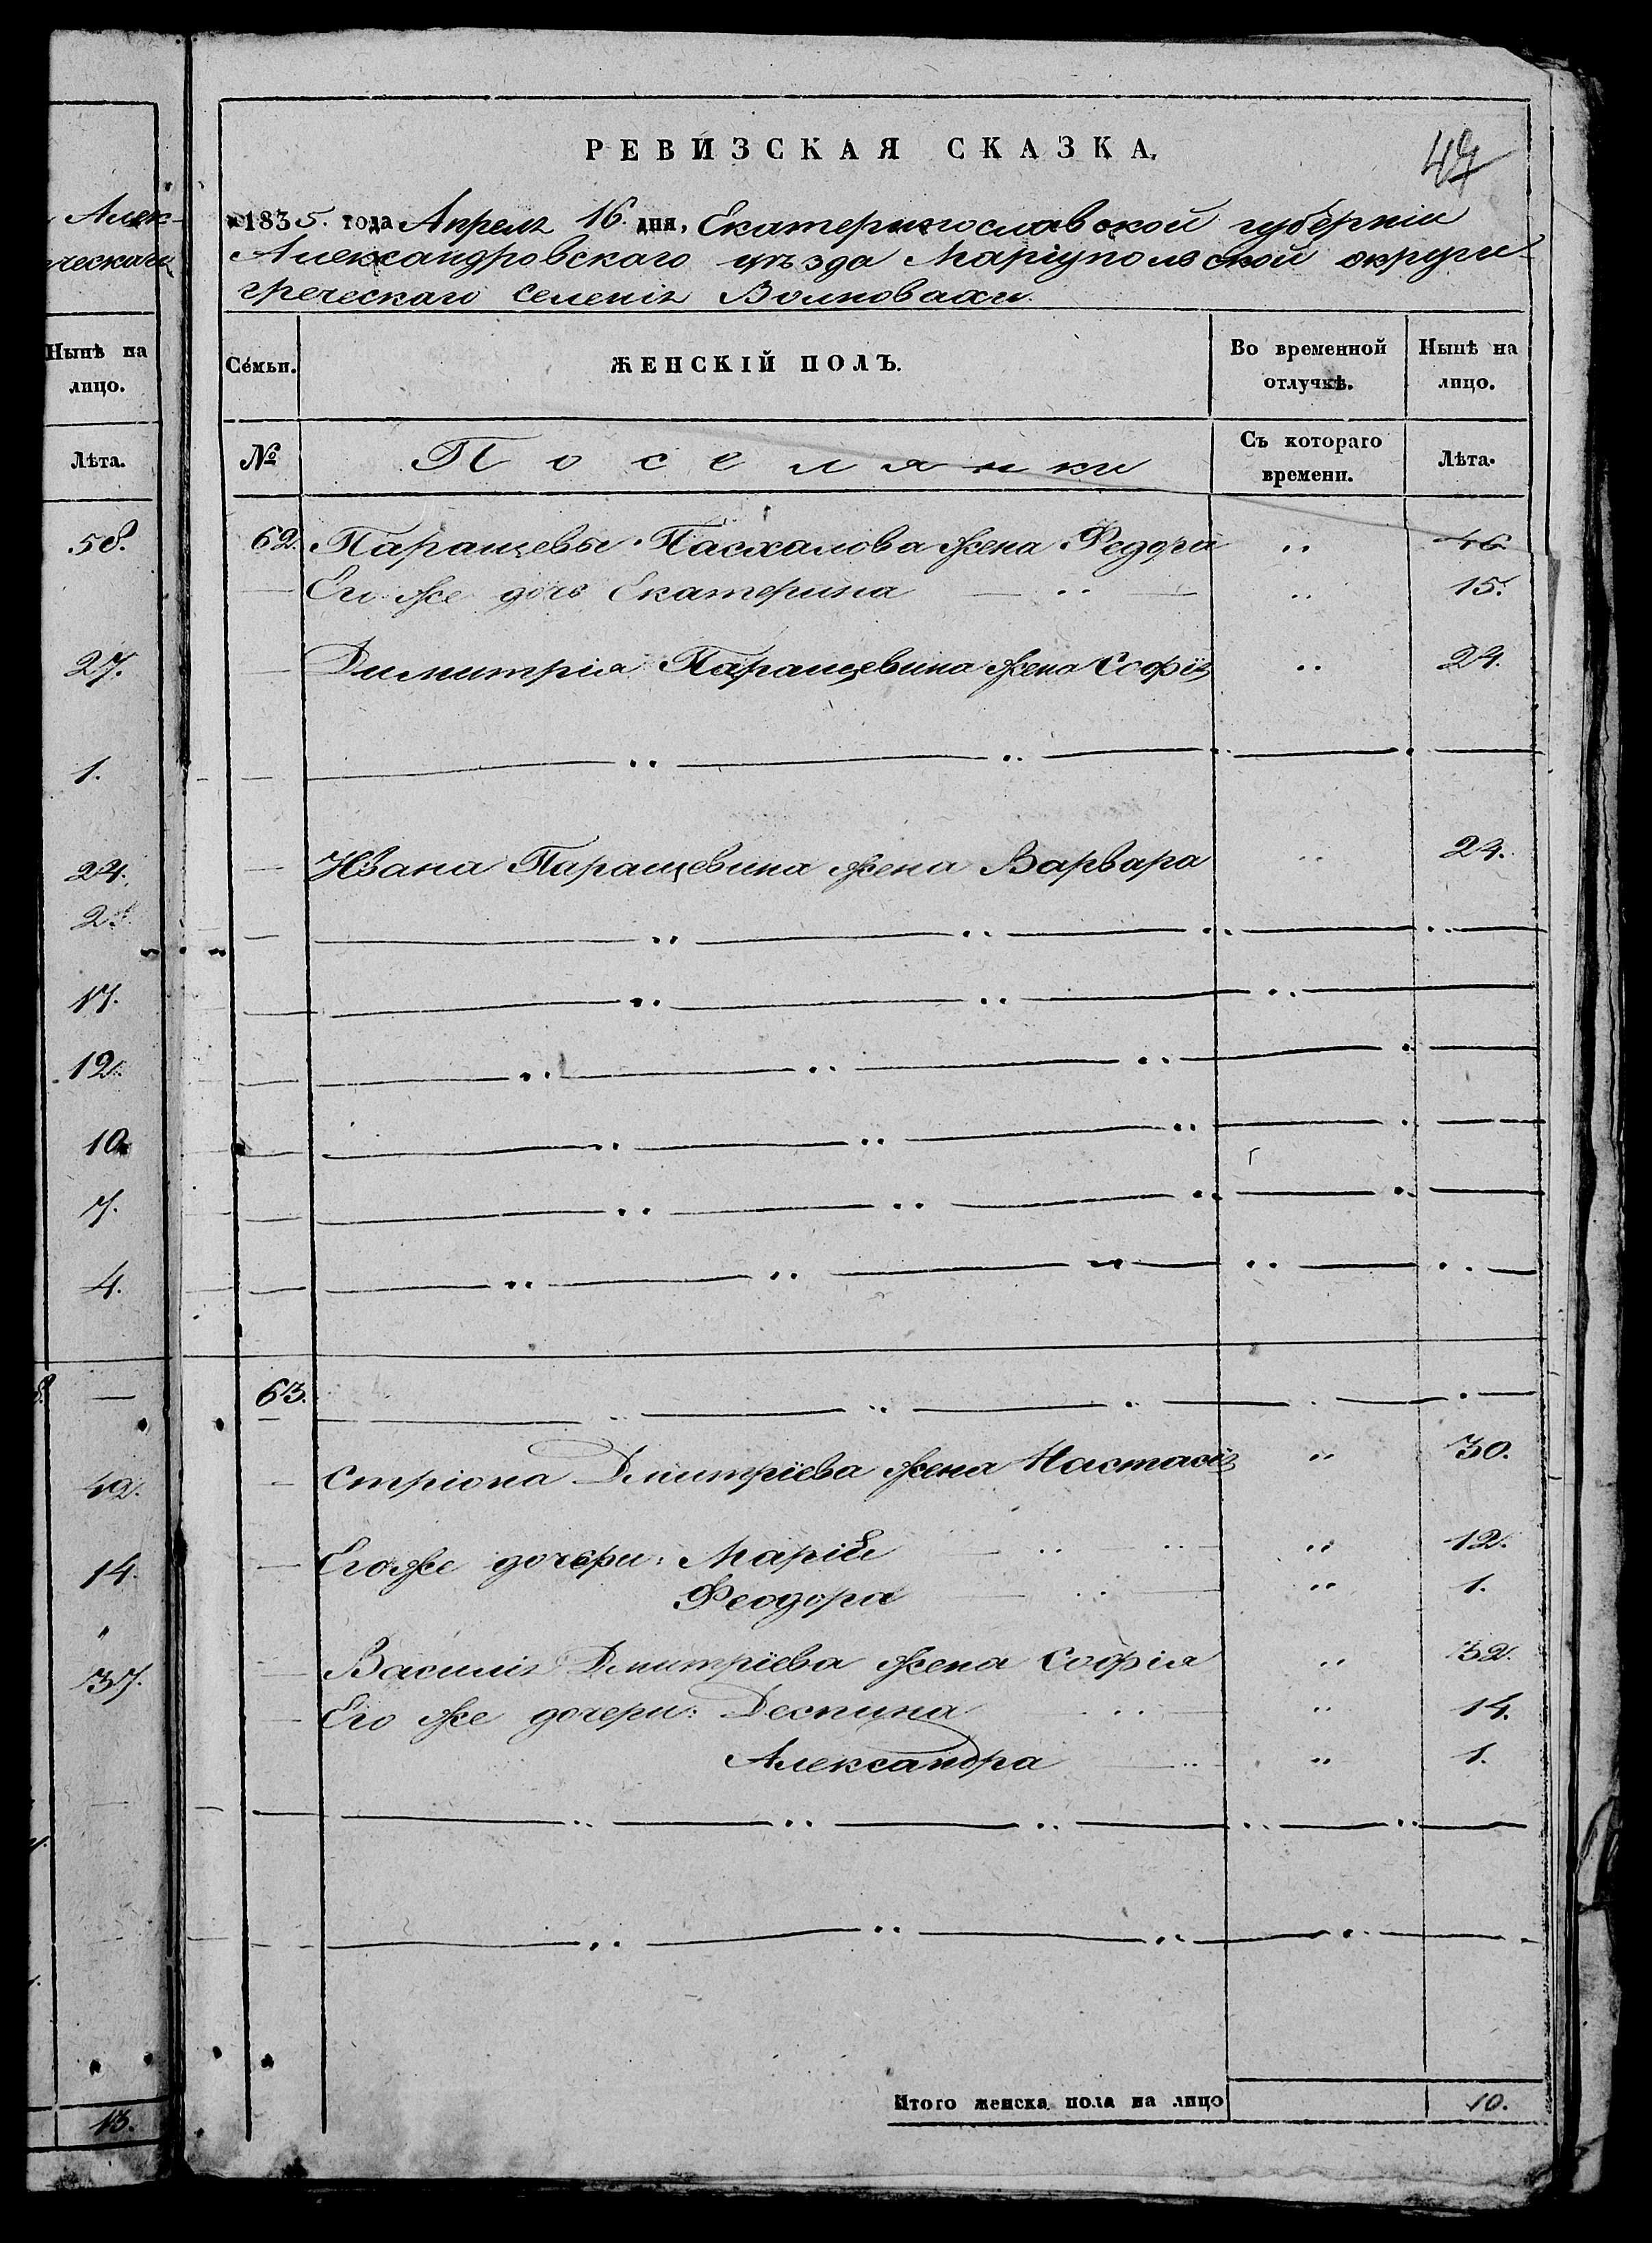 Алек-
ческаго
Нынѣ на
лицо.
Лѣта.
58.
27.
1.
24.
2.
17.
12.
10.
7.
4.
—
42.
14.
"
37.
13.
РЕВИЗСКАЯ СКАЗКА.
47
1835. года Апреля 16 дня, Екатеринославской губерніи
Александровскаго уѣзда Маріупольской округи
греческаго селенія Волновахи.
Семьи. ЖЕНСКІЙ ПОЛЪ. Во временной отлучкѣ. Нынѣ на лицо.
№ Поселянки Съ котораго времени. Лѣта.
62. Паращевы Пасхалова жена Федора .. 46
Его же дочь Екатерина .. .. 15.
Димитрія Паращевина жена Софія .. 24.
Ивана Паращевина жена Варвара .. 24.
63.
Стріона Дмитріева жена Настасія .. 30.
Его же дочери: Марія .. 12.
Феодора .. 1.
Василія Дмитріева жена Софія .. 32.
Его же дочери: Деспина .. 14.
Александра .. 1.
Итого женска пола на лицо 10.